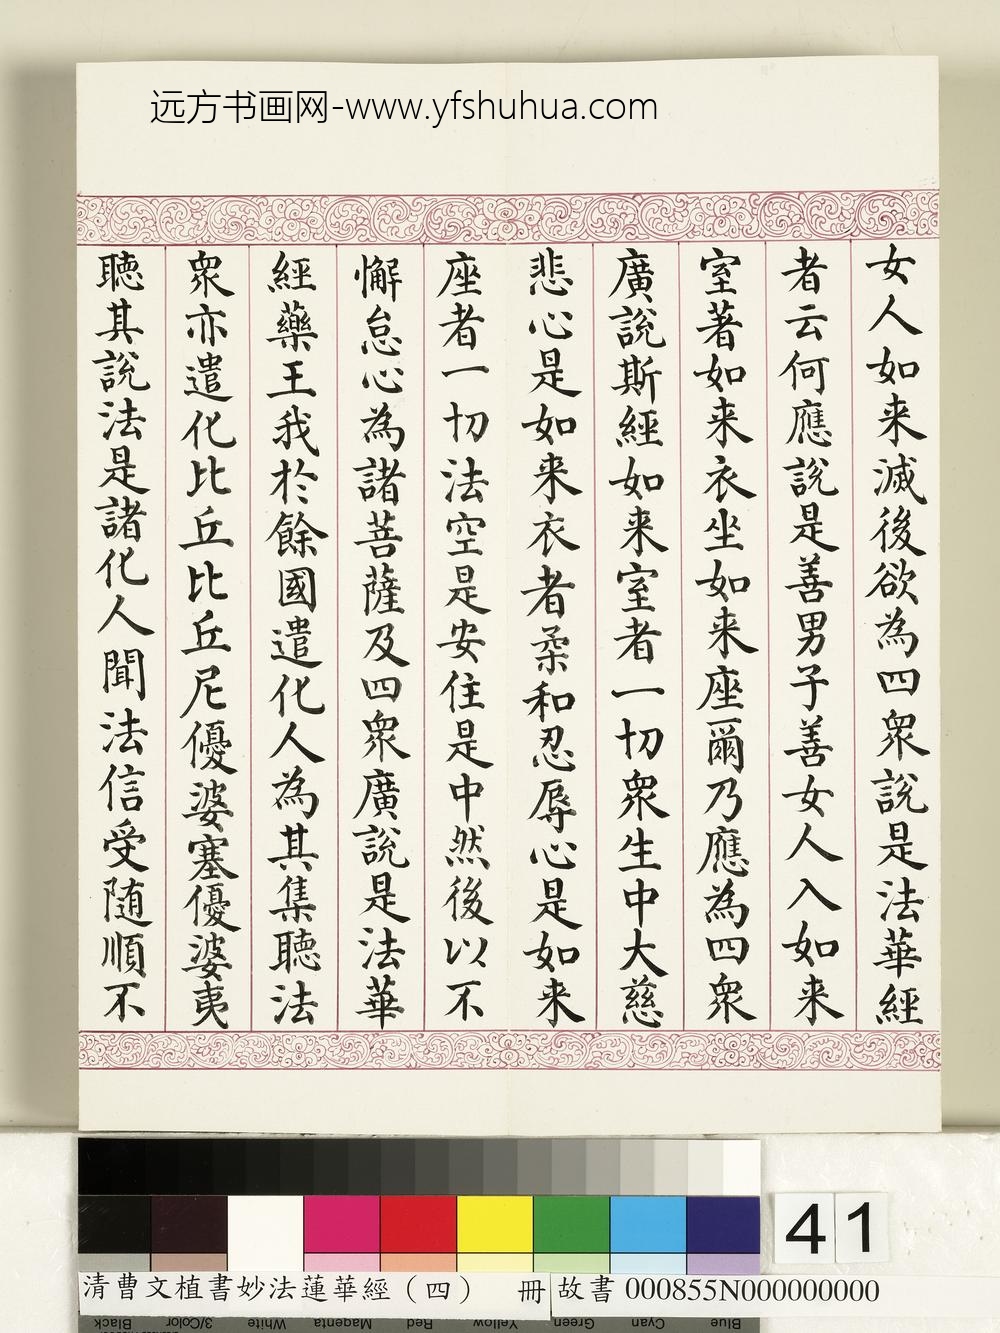 远方书画网-www.yfshuhua.com
女人如来滅後欲為四眾說是法華經
者云何應說是善男子善女人入如来
室著如来衣坐如来座爾乃應為四眾
廣說斯經如来室者一切眾生中大慈
悲心是如来衣者柔和忍辱心是如来
座者一切法空是安住是中然後以不
懈怠心為諸菩薩及四眾廣說是法華
經藥王我於餘國遣化人為其集聽法
眾亦遣化比丘比丘尼優婆塞優婆夷
聽其說法是諸化人聞法信受随順不
41
清曹文植書妙法蓮華經（四） 冊
故書 000855N000000000
Black 3/Color White Magenta Red Yellow Green Cyan Blue